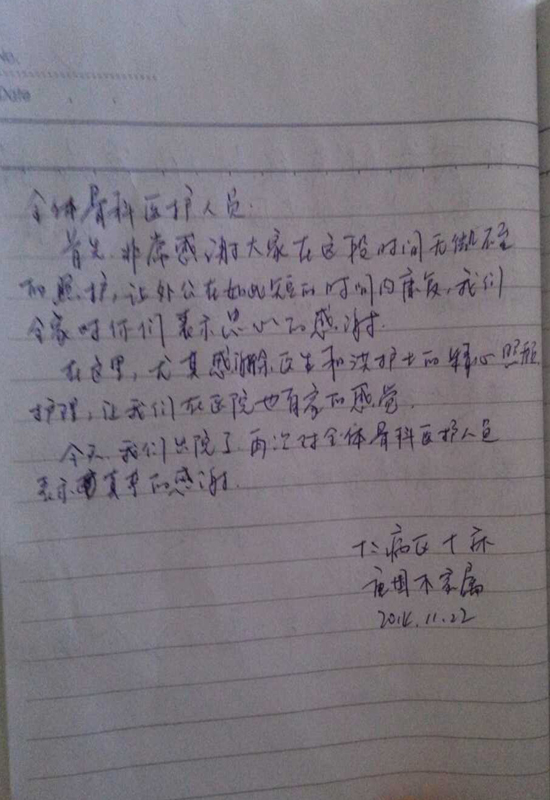 No.
Date
全体骨科医护人员:
首先,非常感谢大家在这段时间无微不至
的照护,让外公在如此短的时间内康复,我们
全家对你们表示衷心的感谢.
在这里,尤其感谢徐医生和洪护士的精心照顾
护理,让我们在医院也有家的感觉.
今天,我们出院了,再次对全体骨科医护人员
表示真幸的感谢.
十二病区十床
家属
2014.11.22